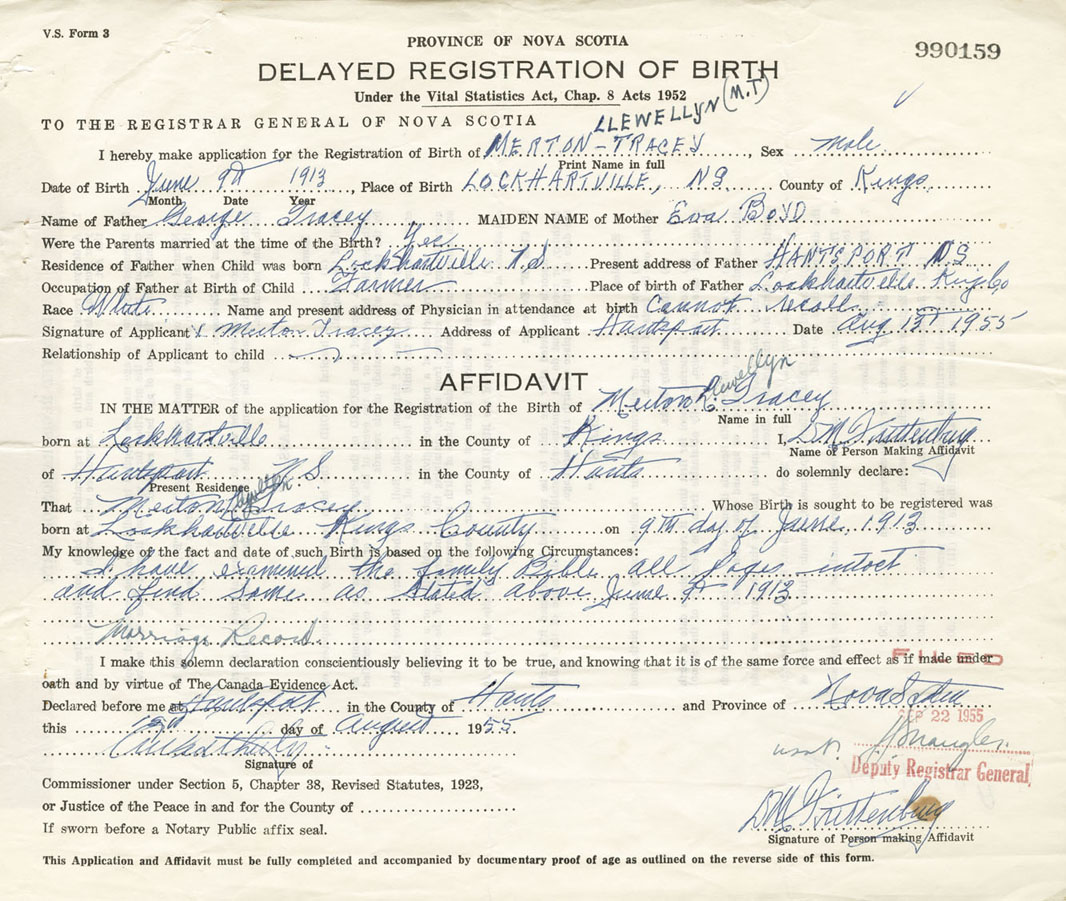 V.S. Form 3
PROVINCE OF NOVA SCOTIA
990159
DELAYED REGISTRATION OF BIRTH
Under the Vital Statistics Act, Chap. 8 Acts 1952
LLEWELLYN (M.T)
TO THE REGISTRAR GENERAL OF NOVA SCOTIA
I hereby make application for the Registration of Birth of MERTON - TRACEY, Sex Male
Print Name in full
Date of Birth June 9th 1913, Place of Birth LOCKHARTVILLE, NS County of Kings
Month Date Year
Name of Father George Tracey MAIDEN NAME of Mother Eva BOYD
Were the Parents married at the time of the Birth? Yes
Residence of Father when Child was born Lockhartville N.S Present address of Father HANTSPORT NS
Occupation of Father at Birth of Child Farmer Place of birth of Father Lockhartville Kings Co
Race White Name and present address of Physician in attendance at birth Cannot recall
Signature of Applicant Merton Tracey Address of Applicant Hantsport Date Aug 1955
Relationship of Applicant to child
AFFIDAVIT
Llewellyn
IN THE MATTER of the application for the Registration of the Birth of Merton L. Tracey
Name in full
born at Lockhartville in the County of Kings I, D M
Name of Person Making Affidavit
of Hantsport N S in the County of Hants do solemnly declare:
Present Residence
That Merton L Tracey Whose Birth is sought to be registered was
born at Lockhartville Kings County on 9th day of June, 1913
My knowledge of the fact and date of such Birth is based on the following Circumstances:
I have examined the family Bible all pages intact
and find same as stated above June 9th 1913
Marriage Record.
I make this solemn declaration conscientiously believing it to be true, and knowing that it is of the same force and effect as if made under
FILED
oath and by virtue of The Canada Evidence Act.
Declared before me at Hantsport in the County of Hants and Province of Nova Scotia
SEP 22 1955
this day of August 1955
Signature of
Deputy Registrar General
Commissioner under Section 5, Chapter 38, Revised Statutes, 1923,
or Justice of the Peace in and for the County of
If sworn before a Notary Public affix seal.
D M
Signature of Person making Affidavit
This Application and Affidavit must be fully completed and accompanied by documentary proof of age as outlined on the reverse side of this form.